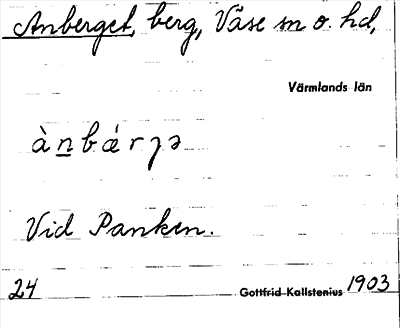 Anberget, berg, Väse sn o. hd,
Värmlands län
ànbǽrȷə
Vid Panken.
24 Gottfrid Kallstenius 1903